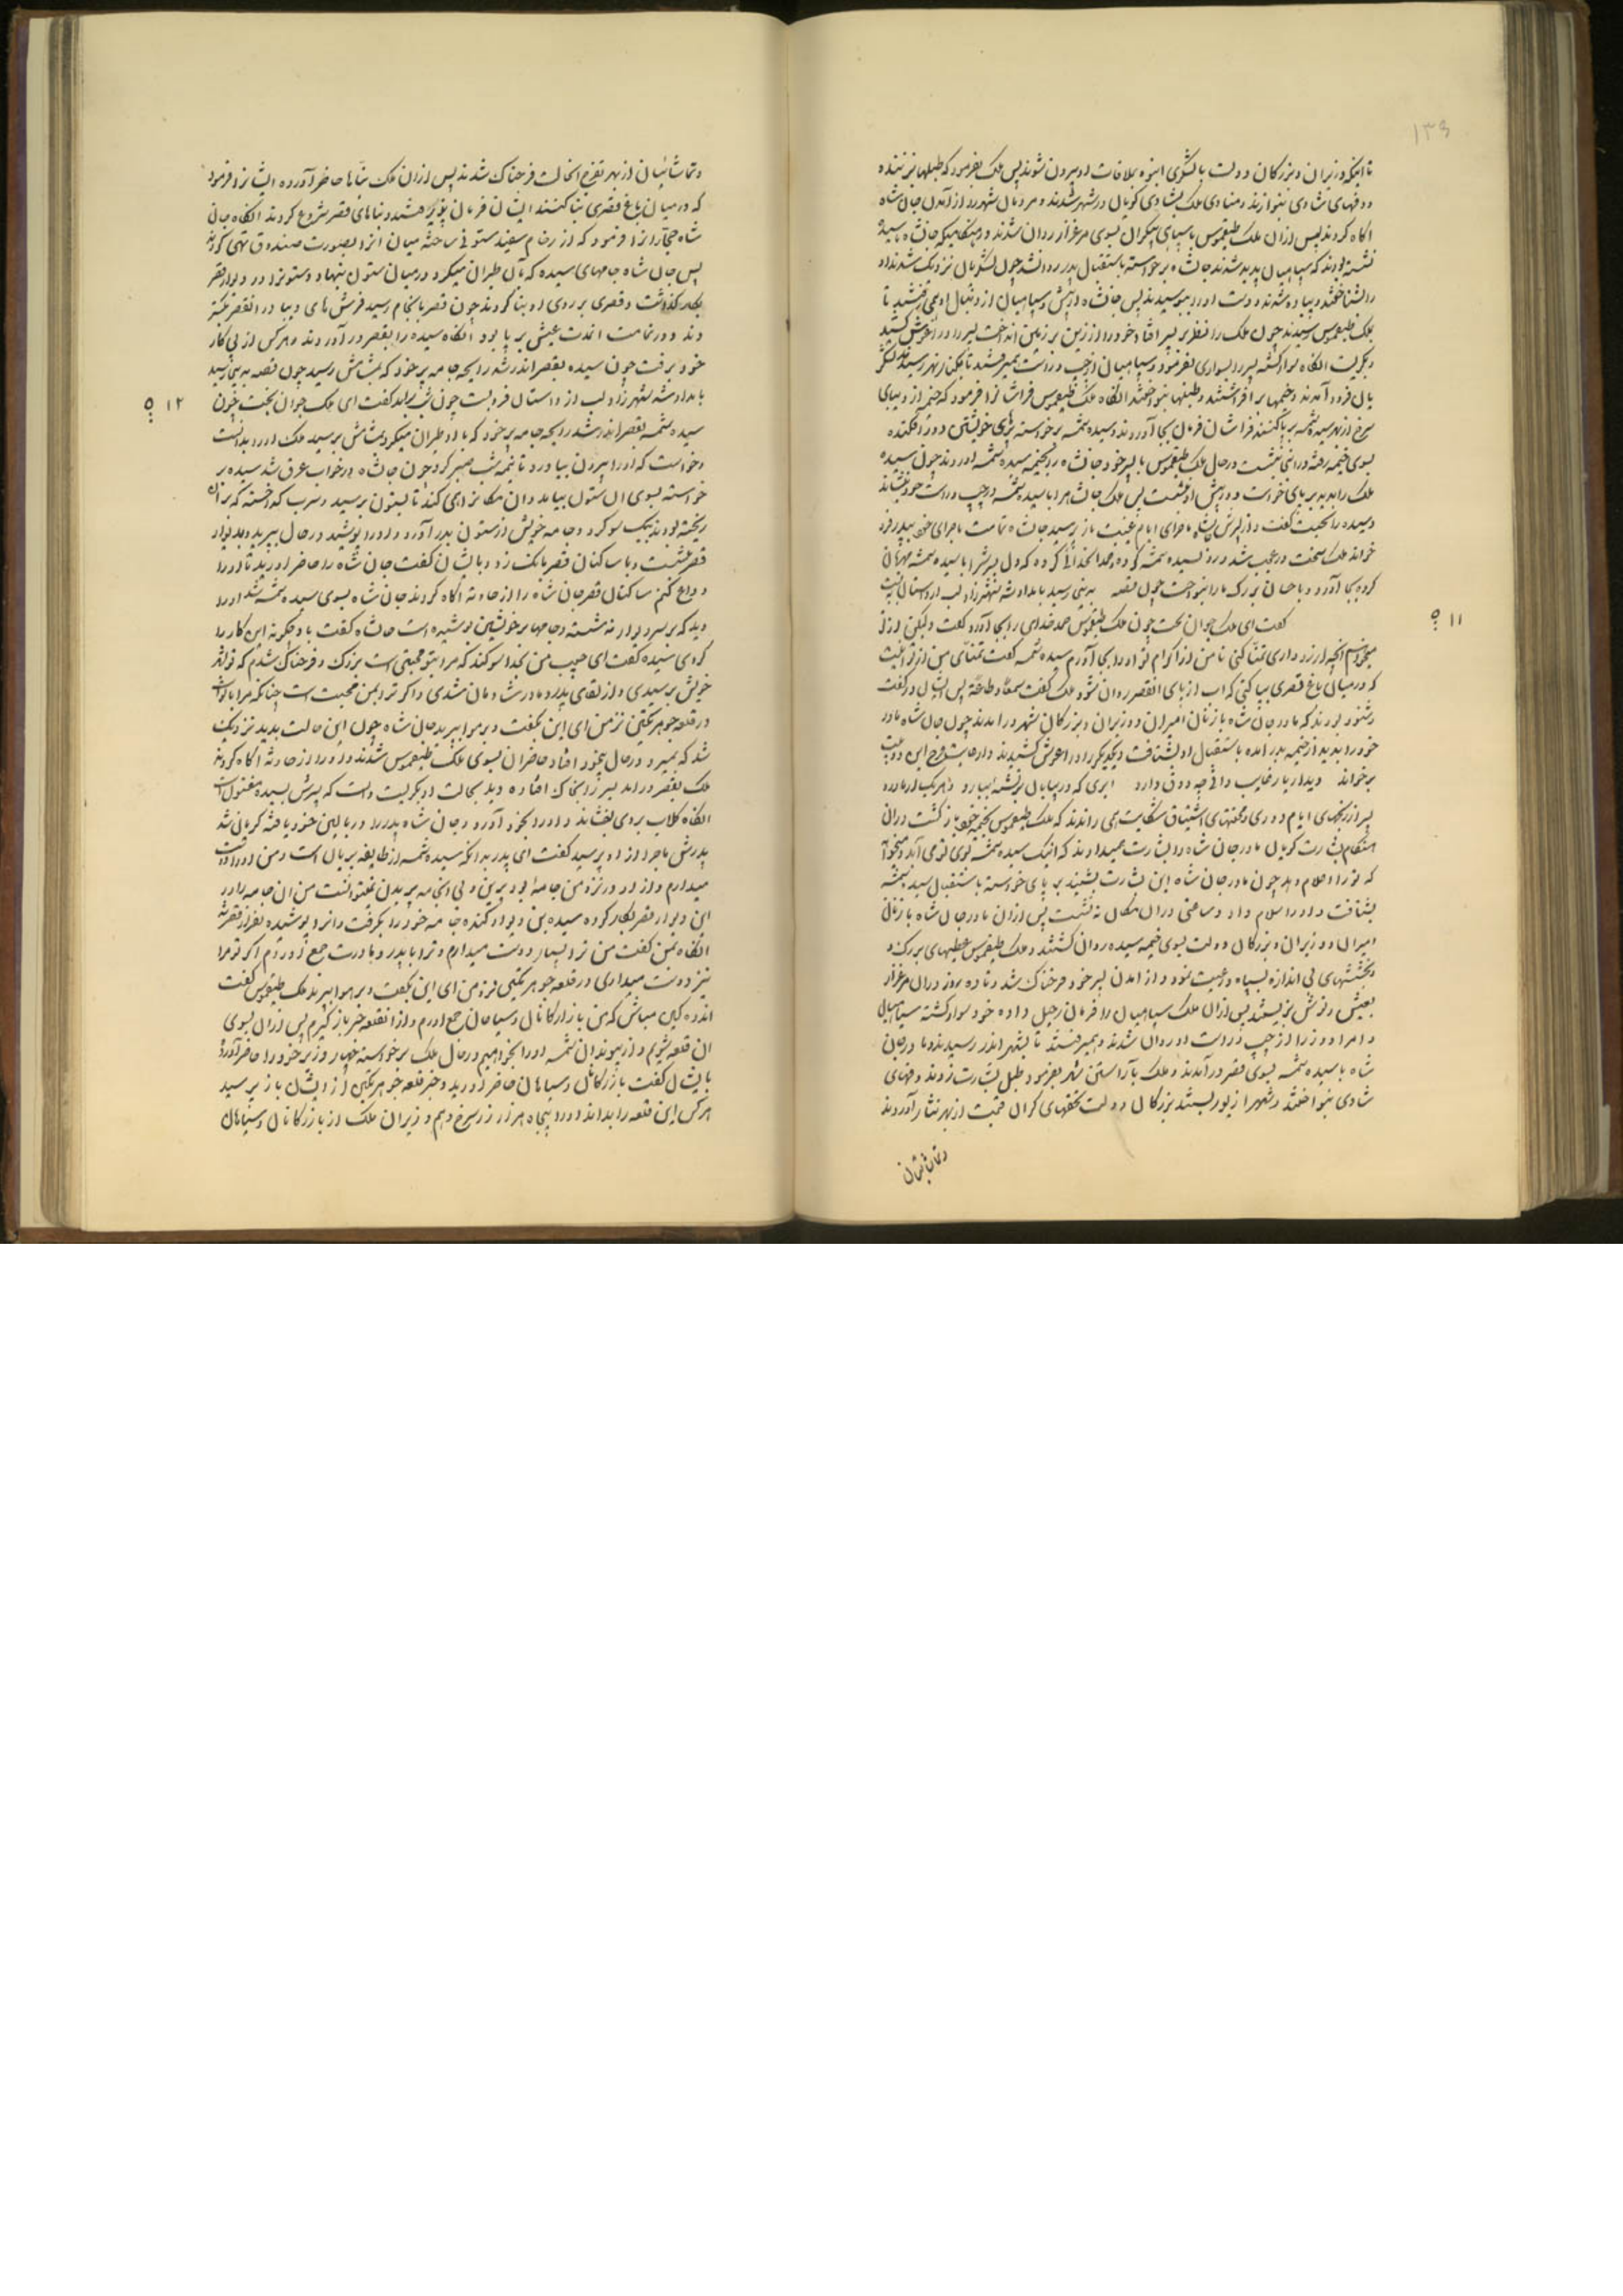 ۱۳۹
تا اینکه وزیران و بزرکان دولت با لشکری انبوه بملاقات او بیرون شوند پس ملک بفرمود که طبلها بزنند و
دفهای شادی بنوازند و منادی ملک بشادی کویان در شهر شدند و مردمان شهر را از آمدن جان شاه
اکاه کردند پس ازان ملک طیغموس با سپاهی بیکران بسوی مرغزار روان شدند و
نشسته بودند که سپاهیان پدید شدند جان شاه برخواسته باستقبال پدر روانشد چون لشکریان نزدیک شدند او
را بشناختند و پیاده شدند و دست او را ببوسیدند پس جانشاه از پیش و سپاهیان از دنبال او همی رفتند تا
بملک طیغموس رسیدند چون ملک را نظر بر پسر افتاد خود را از زین بر زمین انداخت پسر را در اغوش کشید
و بکریست انکاه سوار کشته پسر را بسواری بفرمود و سپاهیان از چپ و راست همیرفتند تا بکنار نهر رسیدند لشکر
یان فرود آمدند و خیمها برافراشتند و طبلها بنواختند انکاه ملک طیغموس فراشانرا فرمود که خیمه از دیبای
سرخ از بهر سیده شمسه بر پا کنند فراشان فرمان بجا آوردند و سیده شمسه برخواسته
بسوی خیمه رفته در انجا بنشست در حال ملک طیغموس با پسر خود جانشاه بخیمه سیده شمسه آمدند چون سیده
ملک را بدید بر پای خواست و در پیش او
و سیده را تحیت کفت و از پسرش جانشاه ماجرای ایام غیبت باز پرسید جانشاه تمامت ماجرای خود به پدر فرو
خواند ملک سخت در عجب شد و رو بسیده شمسه کرده
کرده بجا آورد و با جان بزرک مارا بنواخت چون قصه بدینجا رسید بامداد شد شهرزاد لب از داستان ببست
۱۱ ۵
کفت ای ملک جوان بخت چون ملک طیغموس حمد خدای را بجا آورد کفت ولیکن از تو
میخواهم انچه ارزو داری تمنا کنی تا من از اکرام تو او را بجا آورم سیده شمسه کفت تمنای من از تو اینست
که در میان باغ قصری بنا کنی که اب از پای انقصر روان شود ملک کفت سمعا و طاعة پس ایشان در کفت
و شنود بودند که مادر جان شاه با زنان امیران و وزیران و بزرکان شهر در امدند چون جان شاه مادر
خود را بدید از خیمه بدر امده باستقبال او بشتافت و یکدیکر را در اغوش کشیدند و این دو بیت
برخواند دیدار یار غایب دانی چه ذوق دارد ابری که در بیابان بر تشنه ببارد و هر یک از مادر و
پسر از رنجهای ایام دوری و محنتهای اشتیاق شکایت همی راندند که ملک طیغموس بخیمه خود باز کشت دران
هنکام بشارت کویان مادر جان شاه را بشارت همیدادند که اینک سیده شمسه بسوی تو می آید و میخواهد
که تو را سلام دهد چون مادر جان شاه این بشارت بشنید بر پای خواسته باستقبال سیده شمسه
بشتافت و او را سلام داد و ساعتی دران مکان بنشست پس ازان مادر جان شاه با زنان
امیران و وزیران و بزرکان دولت بسوی خیمه سیده روان کشتند و ملک طیغموس عطیتهای بزرک و
بخششهای بی اندازه بسپاه و رعیت نمود و از امدن پسر خود فرحناک شد و تا ده روز دران مرغزار
بعیش و نوش بزیستند پس ازان ملک سپاهیان را فرمان رحیل داده خود سوار کشته سپاهیان
و امرا و وزرا از چپ و راست او روان شدند و همیرفتند تا بشهر اندر رسیدند و مادر جان
شاه با سیده شمسه بسوی قصر در آمدند و ملک باراستن شهر بفرمود و طبل بشارت زدند و دفهای
شادی بنواختند و شهر را زیور بستند بزرکان دولت تحفهای کران قیمت از بهر نثار آوردند
و تماشائیان
و تماشائیان از بهر تفرج انحالت فرحناک شدند پس ازان ملک بنّایانرا حاضر آورده ایشانرا فرمود
که در میان باغ قصری بنا کنند ایشان فرمان پذیر هشتند و بنای قصر شروع کردند انکاه جان
شاه حجارانرا فرمود که از رخام سفید ستونی ساخته میان انرا بصورت صندوق تهی کردند
پس جان شاه جامهای سیده که با ان طیران میکرد در میان ستون بنهاد و ستونرا در دیوار قصر
بکار کذاشت و قصری بر روی او بنا کردند چون قصر بانجام رسید فرش های دیبا در انقصر
دند و در تمامت اندت عیش بر پا بود انکاه سیده را بقصر در آوردند و هر کس از پی کار
خود برفت چون سیده بقصر اندر شد رایحه جامه پر خود که بمشامش رسید چون قصه بدینجا رسید
بامداد شد شهرزاد لب از داستان فروبست چون شب برآمد کفت ای ملک جوان بخت چون
۱۲ ۵
سیده شمسه بقصر اندر شد رایحه جامه پر خود که با او طیران میکرد بمشامش برسید ملک او را بدانست
و خواست که او را بیرون بیاورد تا نیمه شب صبر کرد چون جانشاه در خواب غرق شد سیده بر
خواسته بسوی ان ستون بیامد و ان مکانرا همی کند تا بستون برسید و سرب کداخته که بر ان
ریخته بودند بیک سو کرد و جامه خویش از ستون بدر آورد و او را بپوشید و در حال بپرید و بدیوار
قصر بنشست و با ساکنان قصر بانک زد و با ایشان کفت جان شاه را حاضر اورید تا او را
وداع کنم ساکنان قصر جان شاه را از حادثه اکاه کردند جان شاه بسوی سیده شمسه شد او را
دید که بر سر دیوار نشسته و جامها بر خویشتن پوشیده است جانشاه کفت با او چکونه این کار را
کردی سیده کفت ای حبیب من بخدا سوکند که مرا بتو محبتی است بزرک و فرحناک شدم که تو بشهر
خویش برسیدی و از لقای پدر و مادرت شادمان شدی و اکر ترا بمن محبت است چنانکه مرا با تو است
در قلعه جوهر نکین نزد من ای این بکفت و بر هوا بپرید جان شاه چون این حالت بدید نزدیک
شد که بمیرد و در حال بیخود افتاد حاضران بسوی ملک طیغموس شدند و او را از حادثه اکاه کردند
ملک بقصر در امد پسر را بخاک افتاده دید بحالت او بکریست دانست که پسرش بسیده مفتون است
انکاه کلاب بروی بفشاند و او را بخود آورد و جان شاه پدر را در بالین خود یافته کریان شد
پدرش ماجرا از او پرسید کفت ای پدر بدانکه سیده شمسه از طایفه پریان است و من او را دوست
میدارم و از او در نزد من جامه بود پرین و بی انجامه پریدن نمیتوانست من ان جامه را در
این دیوار قصر بکار کرده سیده بن دیوار کنده جامه خود را بکرفت و انرا پوشیده بفراز قصر شد
انکاه بمن کفت من ترا بسیار دوست میدارم و ترا با پدر و مادرت جمع آوردم اکر تو مرا
نیز دوست میداری در قلعه جوهر نکین نزد من ای این بکفت و بر هوا بپرید ملک طیغموس کفت
اندوهکین مباش که من بازرکانان و سیاحان جمع اورم و از انقلعه خبر باز کیرم پس ازان بسوی
ان قلعه شویم و از پیوندان شمسه او را بخواهیم در حال ملک برخواسته چهار وزیر خود را حاضر آورد و
بایشان کفت بازرکانان و سیاحان حاضر آورید و خبر قلعه جوهر نکین از ایشان باز پرسید
هر کس این قلعه را بداند او را پنجاه هزار زر سرخ دهم وزیران ملک از بازرکانان و سیاحان